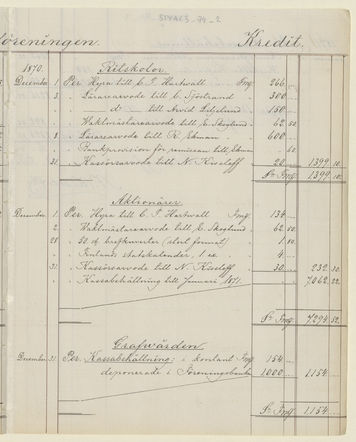 SIYAC3_74_2
föreningen. Kredit.
1870. Ritskolor.
December 1 Per Hyra till C. F. Hartwall Fmg. 266 ..
" 3 " Lärarearvode till C. Sjöstrand 300 ..
" " " do till Arvid Liljelund 150 ..
" " " Vaktmästarearvode till C. Skoglund 62 50.
" 8 " Lärarearvode till R. Ekman 600 ..
" " " Bankprovision för remissan till Ekman " 60
" 31 " Kassörsarvode till N. Kiseleff 20 .. 1399 10.
Sa Fmg. 1399 10.
Aktionärer.
December 1 Per Hyra till C. F. Hartwall Fmg. 134 ..
" 2 " Vaktmästarearvode till C. Skoglund 62 50
" 28 " 50 st brefkuverter (stort format) 1 80.
" " " Finlands statskalender, 1 ex. 4 ..
" 31 " Kassörsarvode till N. Kiseleff 30 .. 232 30.
" " " Kassabehållning till Januari 1871. 7,062 22.
Sa Fmg. 7294 52.
Grafvården.
December 31 Per Kassabehållning: i kontant Fmg. 154 ..
deponerade i Föreningsbanken 1000 .. 1154 ..
Sa Fmg. 1154 ..